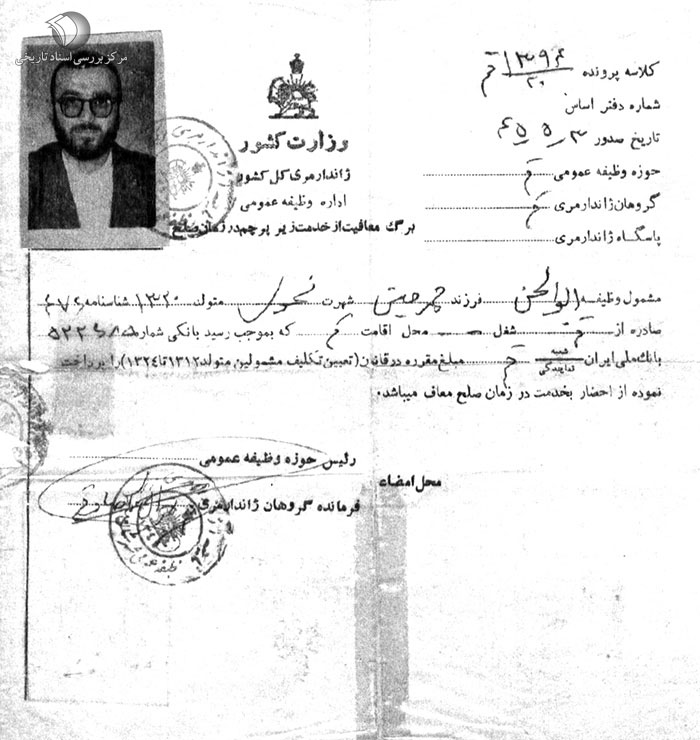 مرکز بررسی اسناد تاریخی
وزارت کشور
ژاندارمری کل کشور
اداره وظیفه عمومی
برگ معافیت از خدمت زیر پرچم در زمان صلح
کلاسه پرونده قم
شماره دفتر اساس
تاریخ صدور ۳-۵-۴۵
حوزه وظیفه عمومی قم
گروهان ژاندارمری قم
پاسگاه ژاندارمری
مشمول وظیفه ابوالحسن فرزند شهرت متولد ۱۳۲۰ شناسنامه
صادره از قم شغل -- محل اقامت قم که بموجب رسید بانکی شماره
بانک ملی ایران شعبه نمایندگی قم مبلغ مقرره در قانون (تعیین تکلیف مشمولین متولد ۱۳۱۲ تا ۱۳۲۴) را پرداخت
نموده از احضار بخدمت در زمان صلح معاف میباشد.
رئیس حوزه وظیفه عمومی
محل امضاء
فرمانده گروهان ژاندارمری